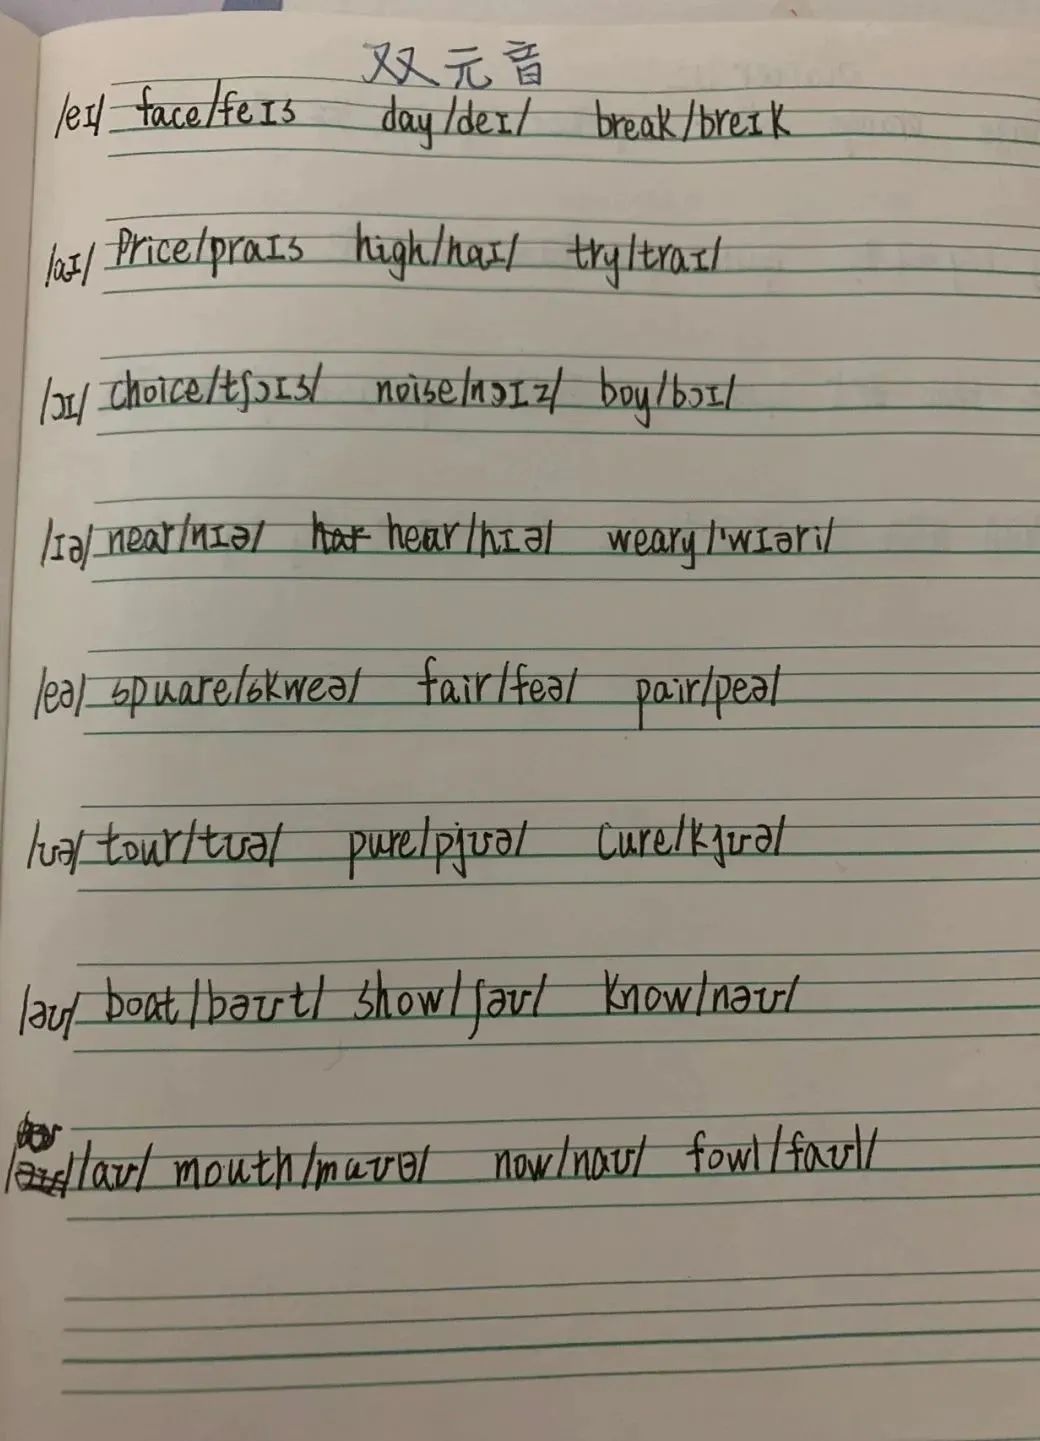 双元音
/eɪ/ face/feɪs day/deɪ/ break/breɪk
/aɪ/ Price/praɪs high/haɪ/ try/traɪ/
/ɔɪ/ choice/tʃɔɪs/ noise/nɔɪz/ boy/bɔɪ/
/ɪə/ near/nɪə/ hear/hɪə/ weary/'wɪəri/
/eə/ spuare/skweə/ fair/feə/ pair/peə/
/ʊə/ tour/tʊə/ pure/pjʊə/ Cure/kjʊə/
/əʊ/ boat/bəʊt/ show/ʃəʊ/ know/nəʊ/
/aʊ/ mouth/maʊθ/ now/naʊ/ fowl/faʊl/